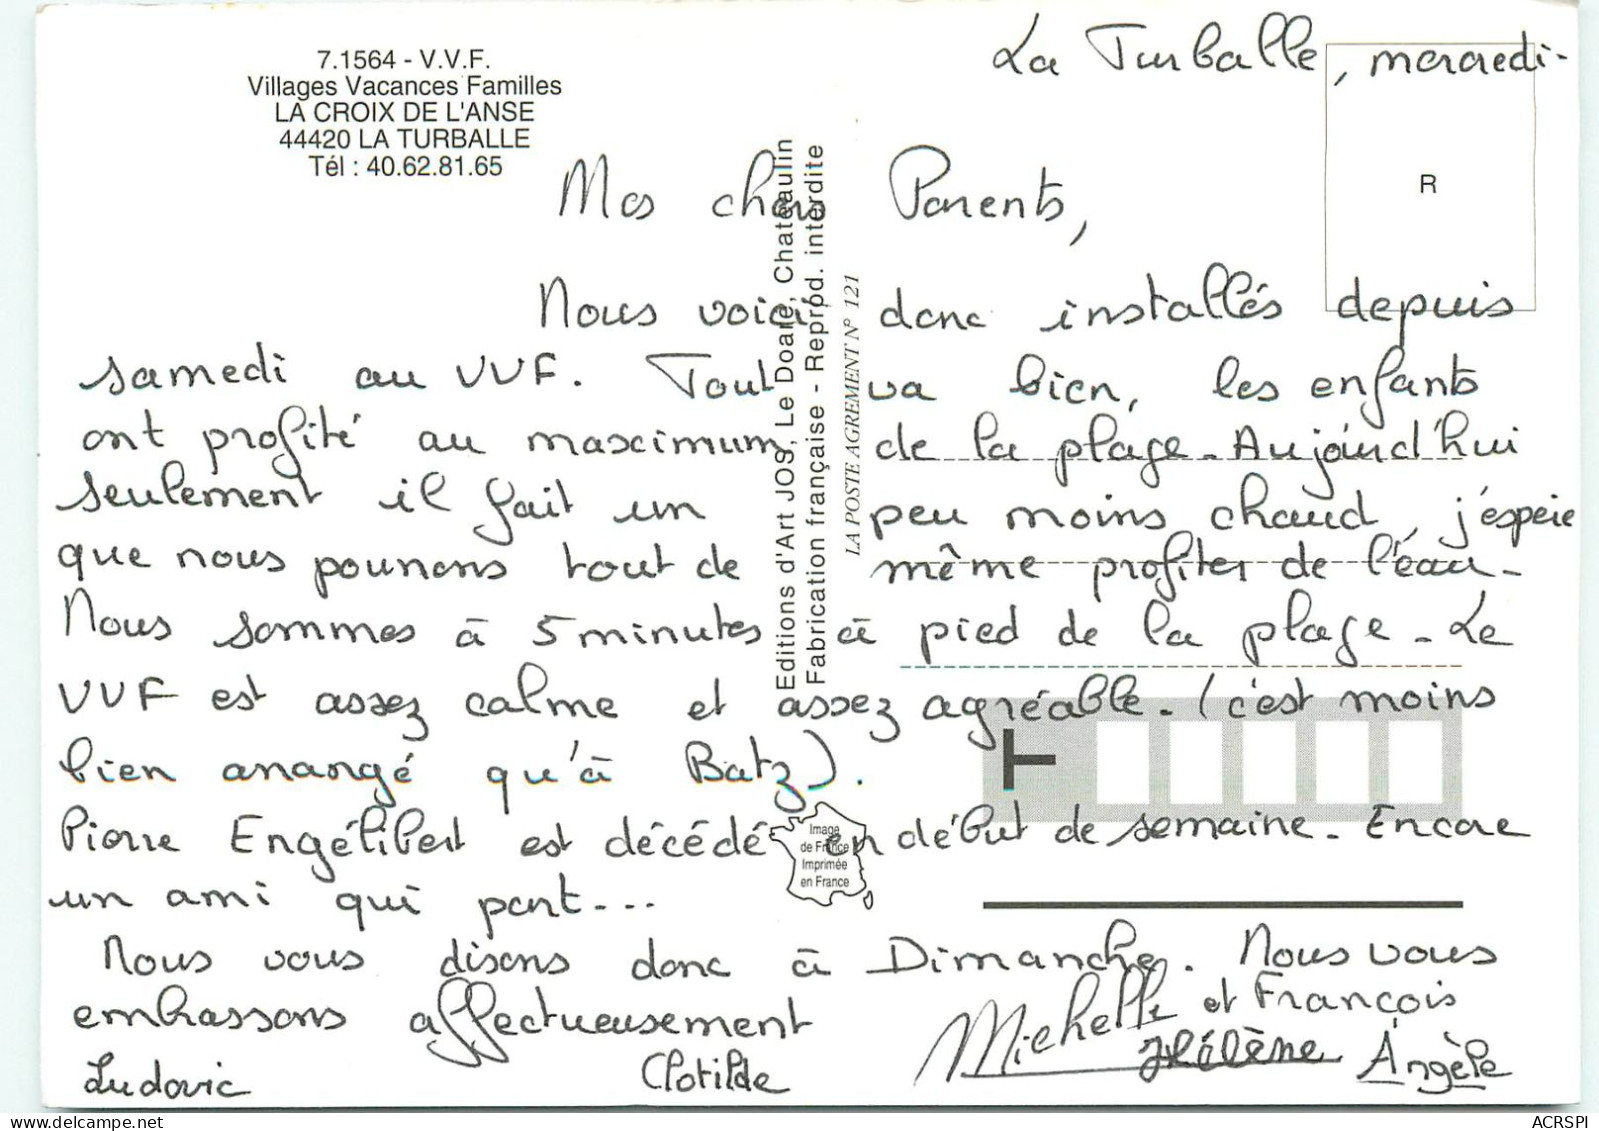 7.1564 - V.V.F.
Villages Vacances Familles
LA CROIX DE L'ANSE
44420 LA TURBALLE
Tél : 40.62.81.65
La Turballe, mercredi-
R
Mes chers Parents,
Nous voici donc installés depuis
samedi au VVF. Tout va bien, les enfants
ont profité au maximum de la plage - Aujourd'hui
seulement il fait un peu moins chaud, j'espère
que nous pourrons tout de même profiter de l'eau -
Nous sommes à 5 minutes à pied de la plage - Le
VVF est assez calme et assez agréable - (c'est moins
bien arrangé qu'à Batz).
Pierre Engélibert est décédé en début de semaine - Encore
un ami qui part ---
Nous vous disons donc à Dimanche. Nous vous
embrassons affectueusement
Michelle et François
Ludovic Clotilde Hélène Angèle
Editions d'Art JOS, Le Doaré, Chateaulin
Fabrication française - Reprod. interdite
LA POSTE AGREMENT N° 121
T
Image
de France
Imprimée
en France
ACRSPI